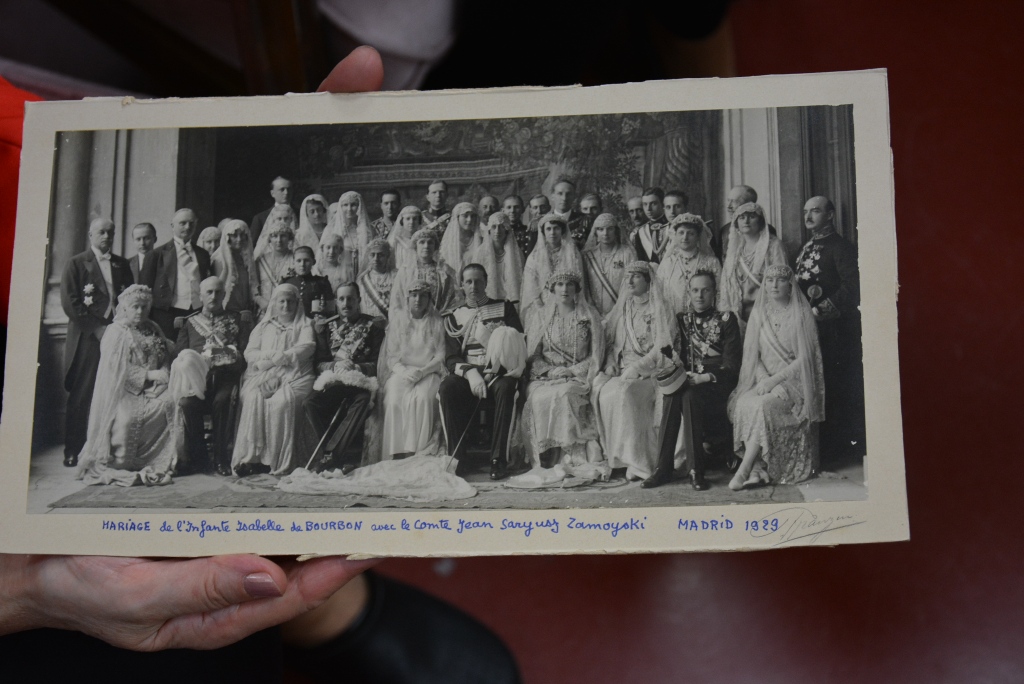 MARIAGE de l'Infante Isabelle de BOURBON avec le Comte Jean Saryusz Zamoyski MADRID 1929